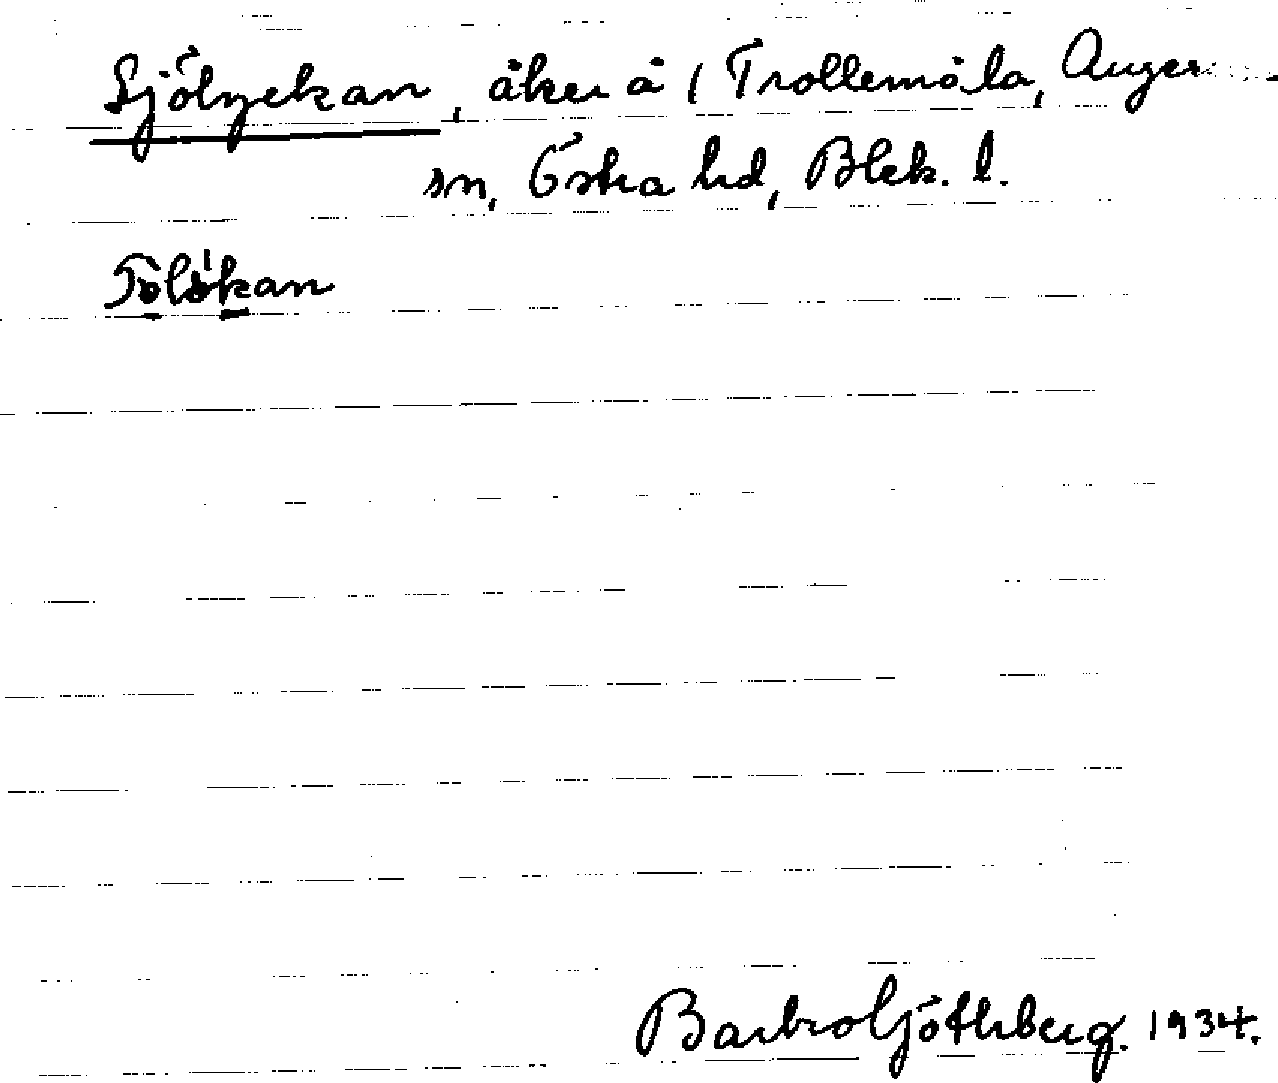 Sjölyckan, åker å 1 Trollemåla, Anger
sn, Östra hd, Blek. l.
Barbro Göthberg. 1934.